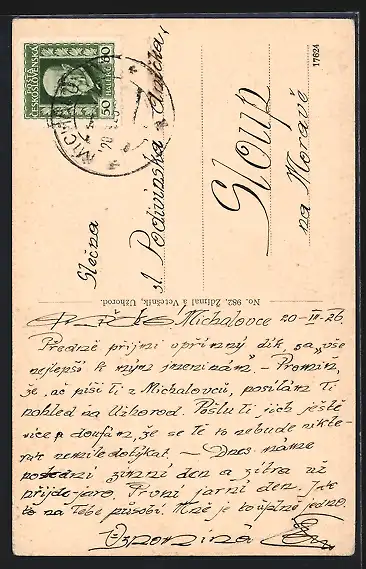 POŠTA
ČESKOSLOVENSKÁ
50 HALÉŘŮ 50
17624
Slečna
sl. Podivínská
Sloup
na Moravě
No. 982. Zdjmal a Vetešník, Užhorod.
Michalovce 20-III-26.
Předně přijmi upřímný dík za „vše
nejlepší k mým jmeninám“. – Promiň,
že, ač píši ti z Michalovců, posílám ti
pohled na Užhorod. Pošlu ti jich ještě
více a doufám, že se tě to nebude nikte-
rak nemile dotýkat. – Dnes máme
poslední zimní den a zítra už
přijde jaro. První jarní den. Jak
to na Tebe působí. Mně je to úplně jedno.
Vzpomíná